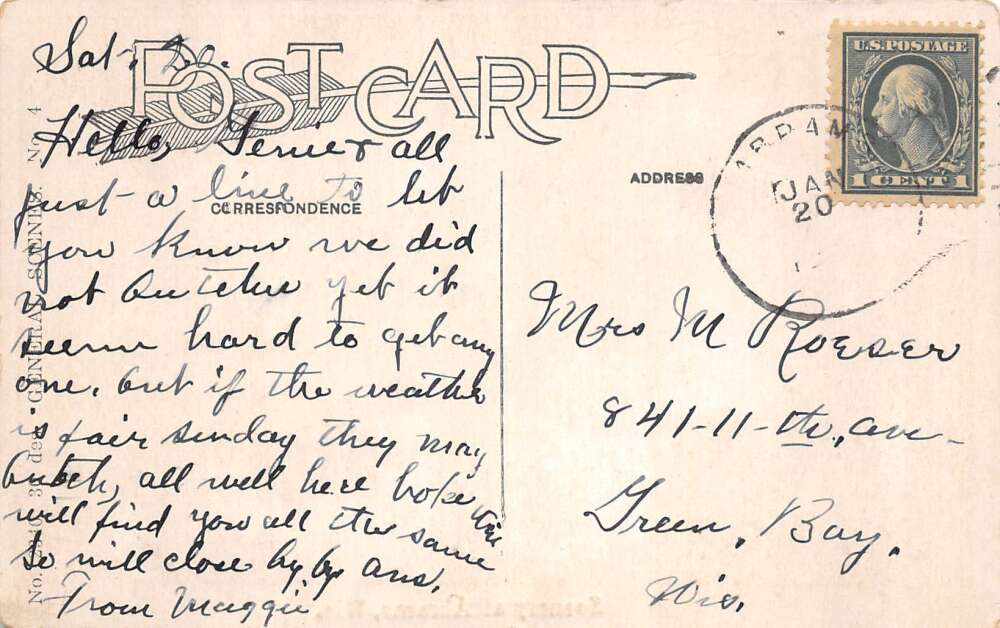 POST CARD
Sat, 20.
Hello, Tenie & all
just a line to let
CORRESPONDENCE
you know we did
not butcher yet it
seem hard to get any
one, but if the weather
is fair sunday they may
butch, all well here hope this
will find you all the same
So will close by by ans.
From Maggie
No. 4
GENERAL SCENES.
ADDRESS
U.S. POSTAGE
1 CENT 1
JAN
20
Mrs M Roeser
841-11-th, ave
Green, Bay,
Wis.